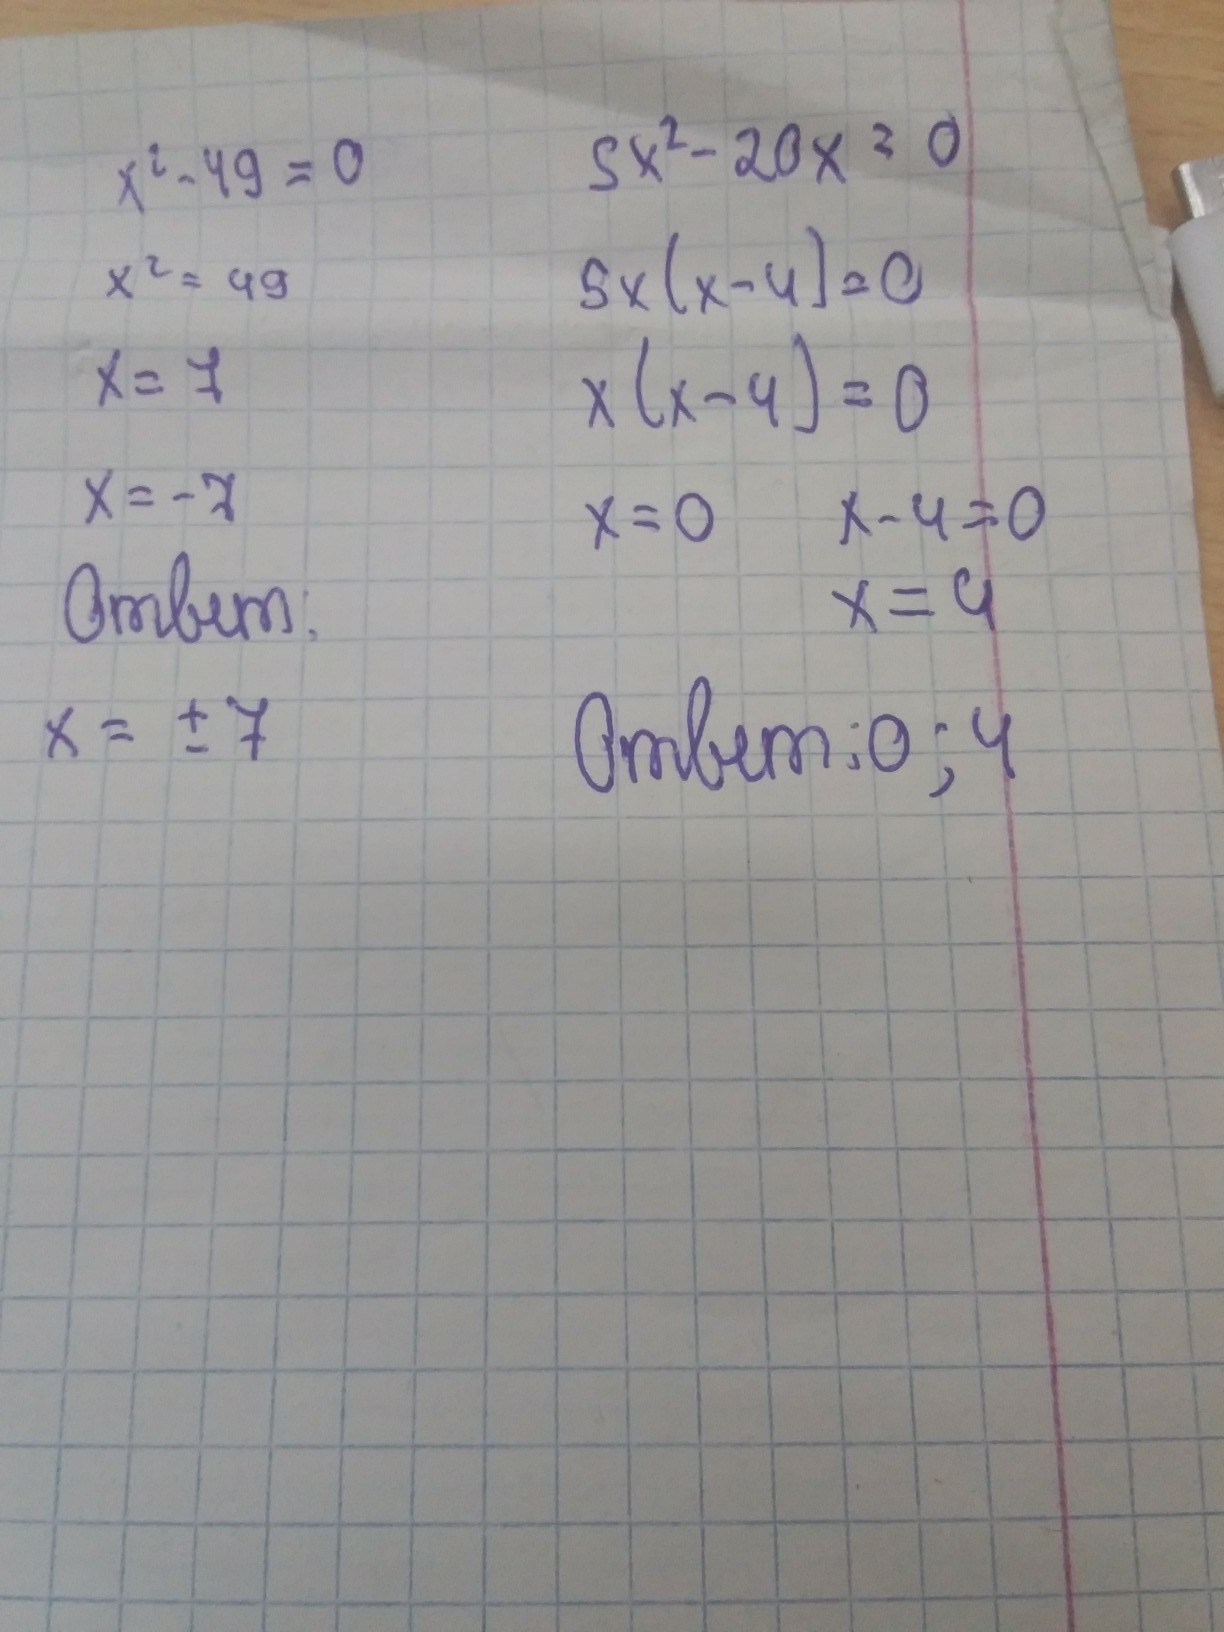 x² - 49 = 0
x² = 49
x = 7
x = -7
Ответ:
x = ± 7
5x² - 20x = 0
5x(x - 4) = 0
x(x - 4) = 0
x = 0 x - 4 = 0
x = 4
Ответ: 0 ; 4